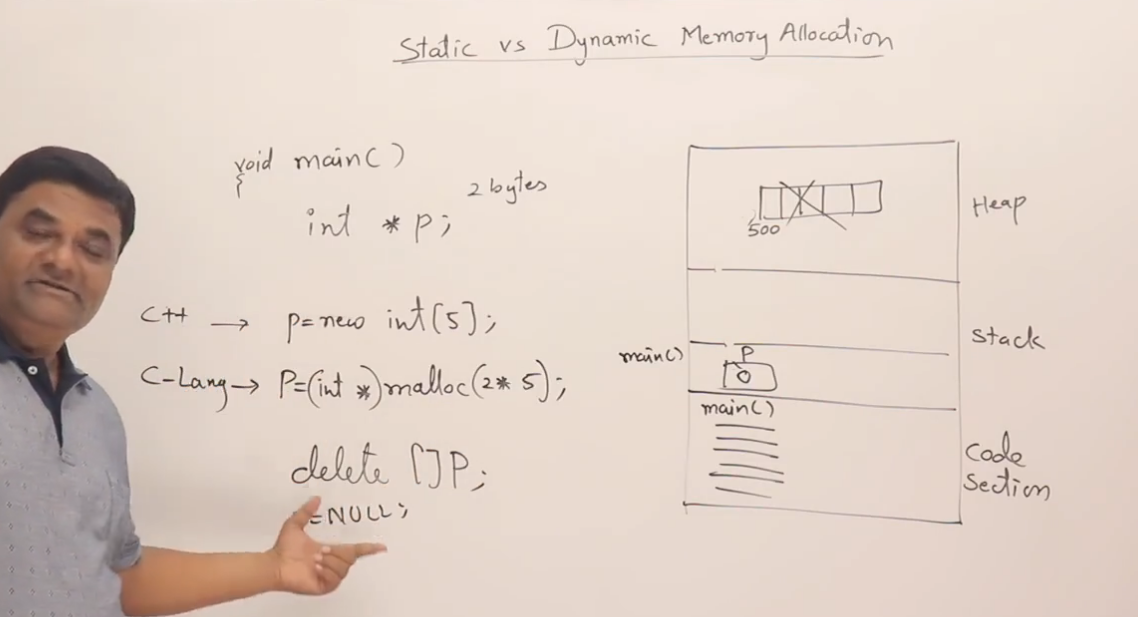 Static vs Dynamic Memory Allocation
void main()
{
2 bytes
int * p;
C++ → p=new int[5];
C-Lang→ P=(int *)malloc(2* 5);
delete []P;
=NULL;
500
Heap
Stack
main()
P
0
main()
Code
Section